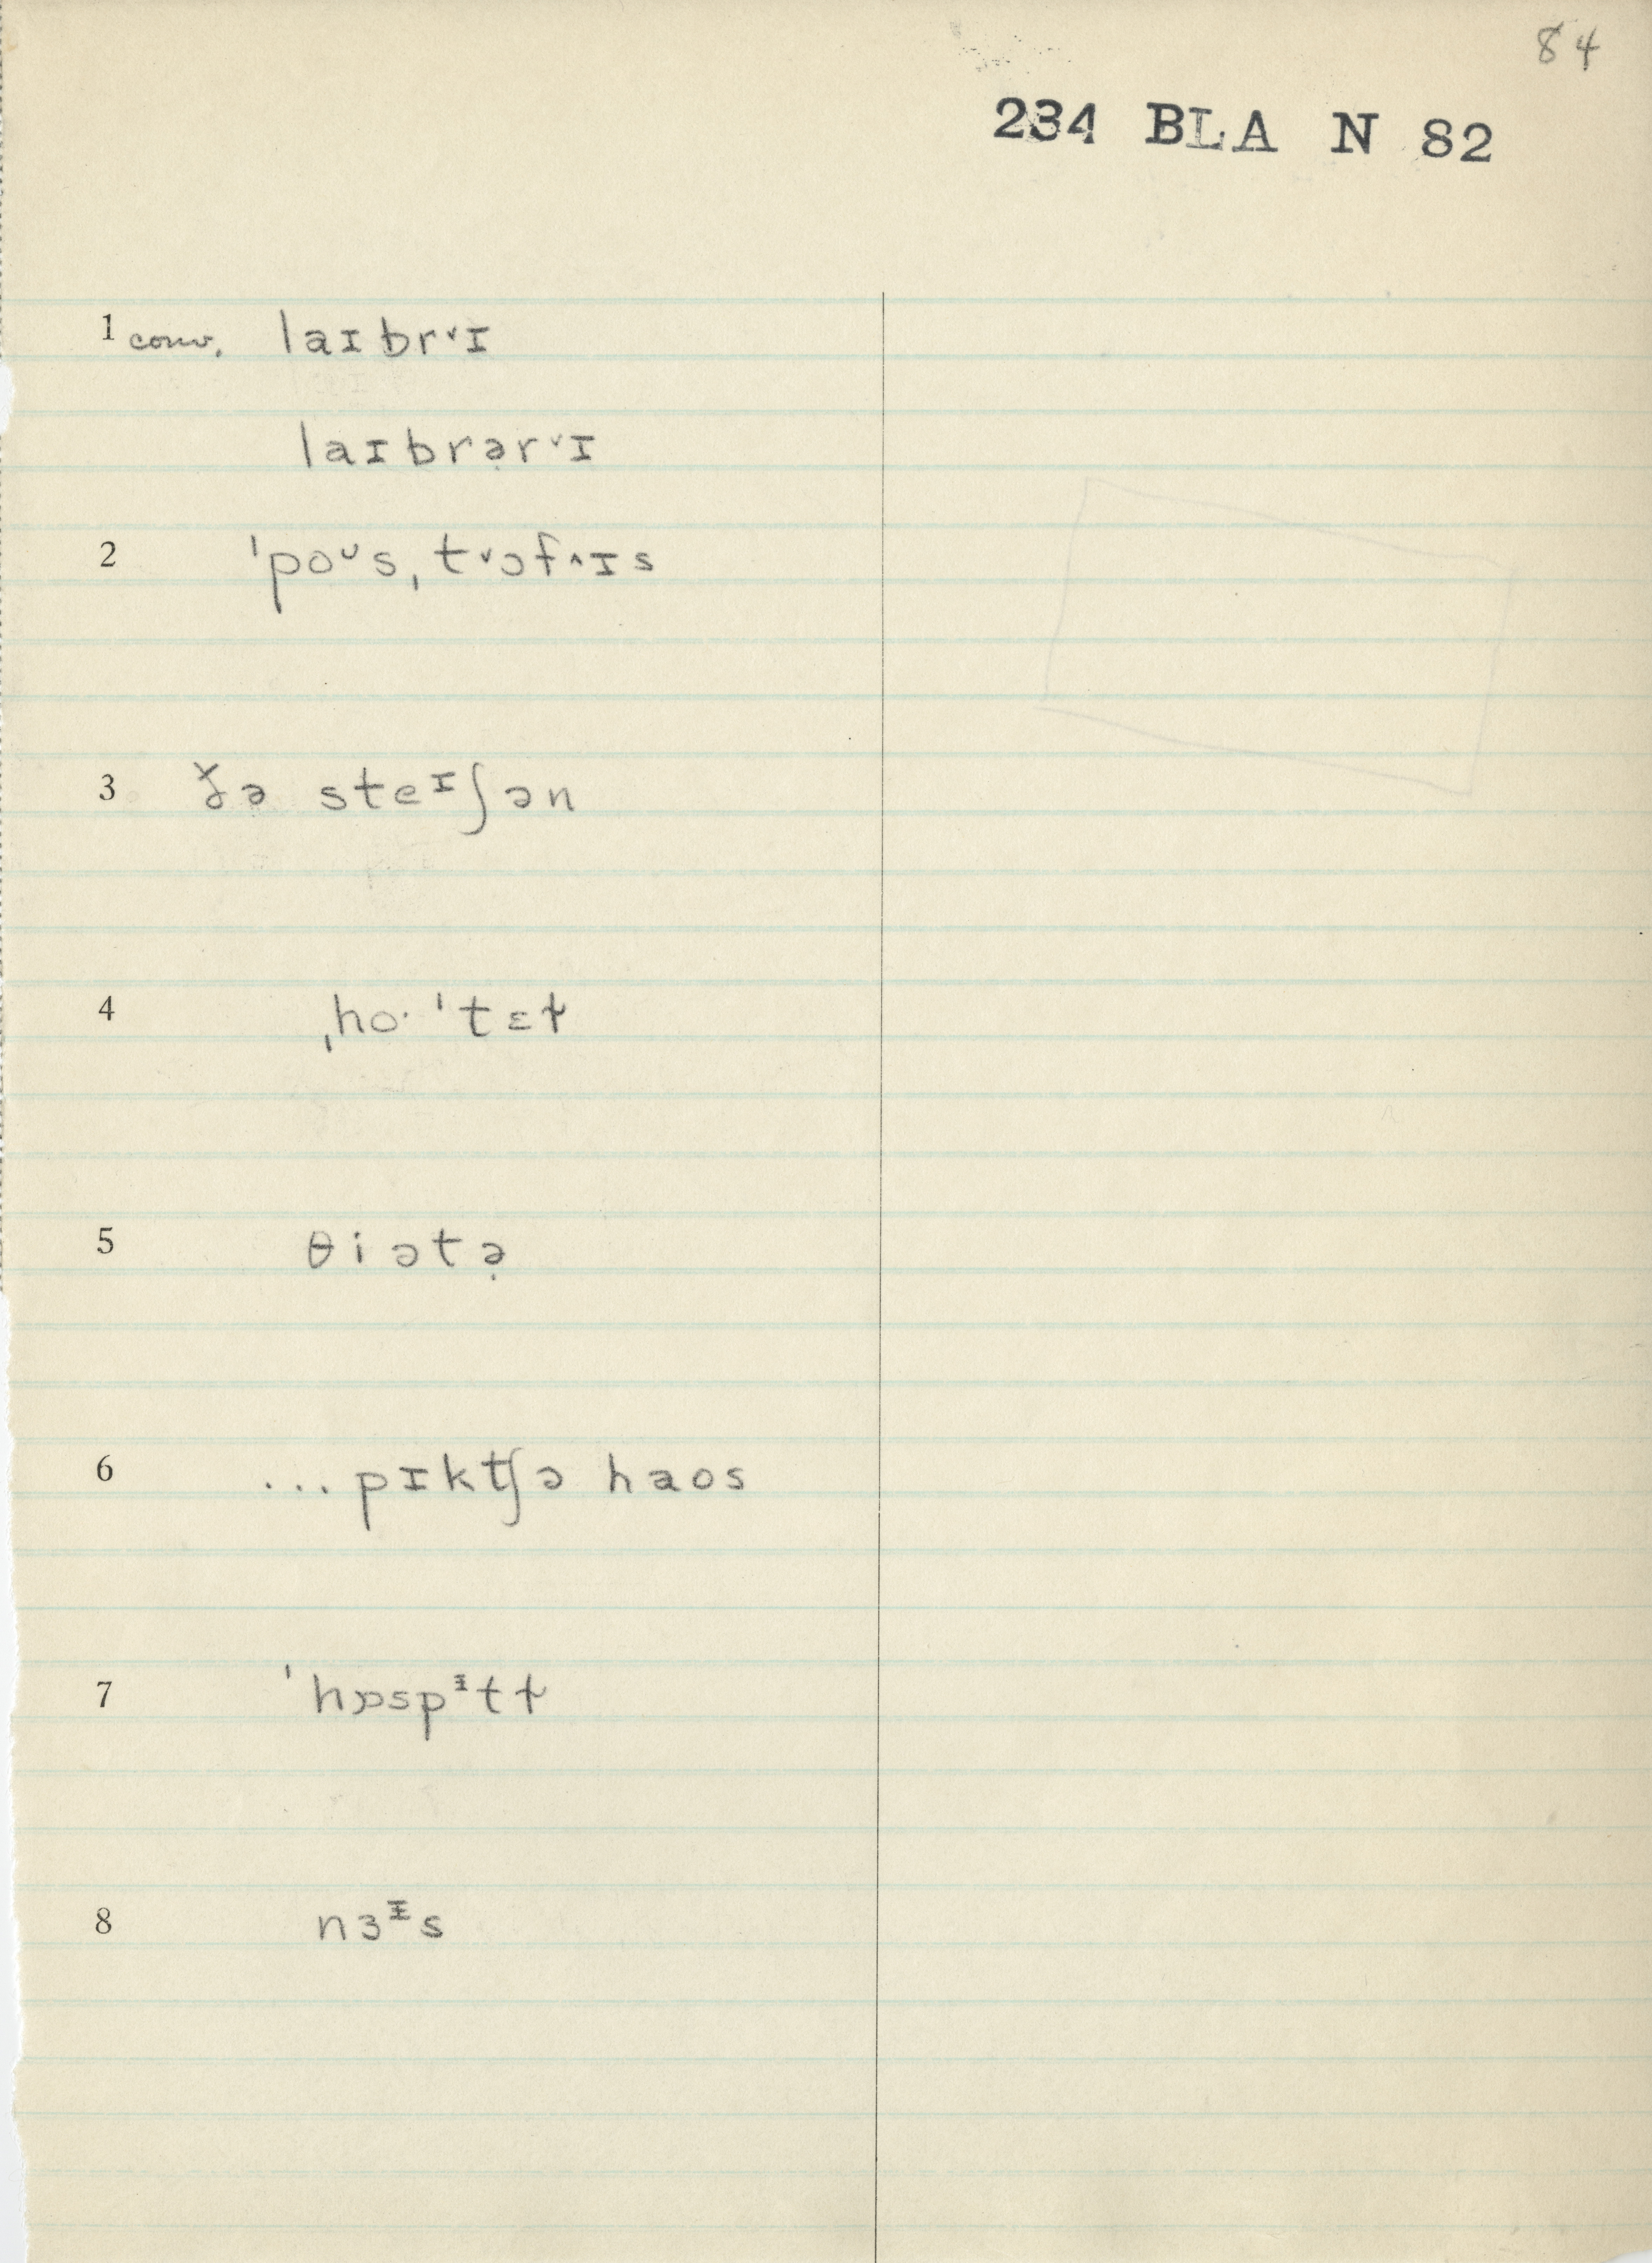 84
234 BLA N 82
1 conv. laɪbr˅ɪ
laɪbrə̣r˅ɪ
2 ˈpoᶷsˌt˅əf˄ɪs
3 ð̌ə steᶦʃən
4 ˌho· ˈtɛɫ
5 θiətə̣
6 ... pɪktʃə haos
7 ˈhɒspᵻtɫ
8 nɜᵻs